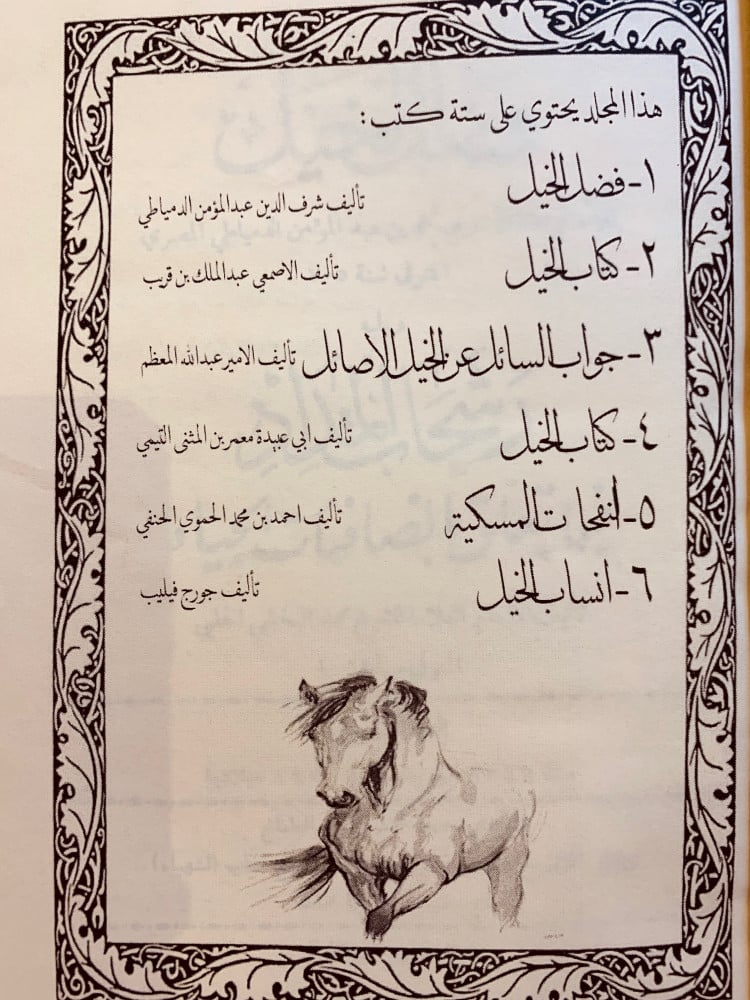 هذا المجلد يحتوي على ستة كتب :
١- فضل الخيل تأليف شرف الدين عبد المؤمن الدمياطي
٢- كتاب الخيل تأليف الاصمعي عبد الملك بن قريب
٣- جواب السائل عن الخيل الاصائل تأليف الامير عبد الله المعظم
٤- كتاب الخيل تأليف ابي عبيدة معمر بن المثنى التيمي
٥- النفحات المسكية تأليف احمد بن محمد الحموي الحنفي
٦- انساب الخيل تأليف جورج فيليب